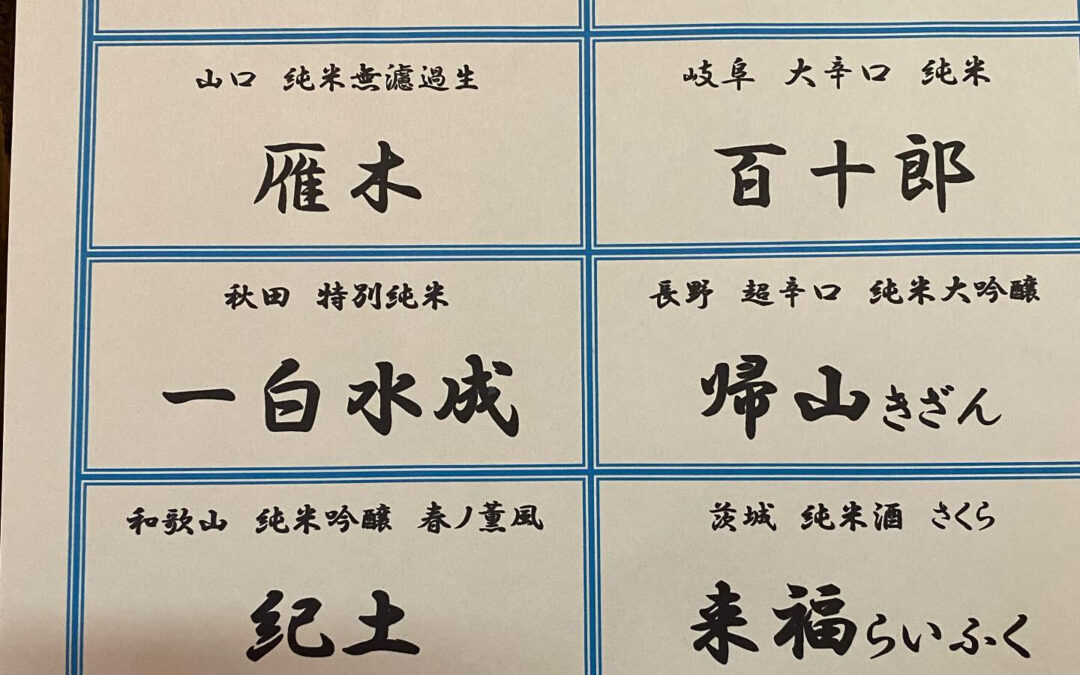 山口 純米無濾過生
雁木
岐阜 大辛口 純米
百十郎
秋田 特別純米
一白水成
長野 超辛口 純米大吟醸
帰山きざん
和歌山 純米吟醸 春ノ薫風
紀土
茨城 純米酒 さくら
来福らいふく